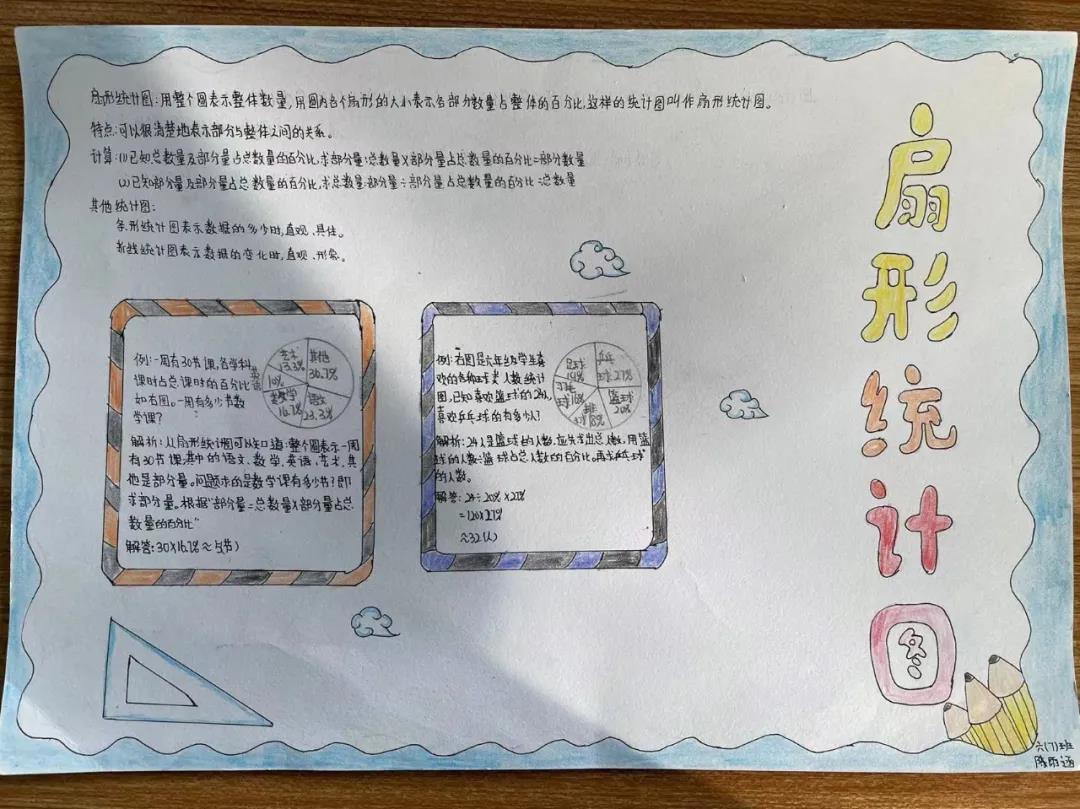 扇形统计图:用整个圆表示整体数量,用圆内各个扇形的大小表示各部分数量占整体的百分比,这样的统计图叫作扇形统计图。
特点:可以很清楚地表示部分与整体之间的关系。
计算:(1)已知总数量及部分量占总数量的百分比,求部分量:总数量×部分量占总数量的百分比=部分数量
(2)已知部分量及部分量占总数量的百分比,求总数量:部分量÷部分量占总数量的百分比=总数量
其他统计图:
条形统计图表示数据的多少时,直观、具体。
折线统计图表示数据的变化时,直观、形象。
扇形统计图
例:一周有30节课,各学科
课时占总课时的百分比
如右图。一周有多少节数
学课?
艺术
13.3%
其他
36.7%
英语
10%
数学
16.7%
语文
23.3%
解析:从扇形统计图可以知道:整个圆表示一周
有30节课,其中的语文、数学、英语、艺术、其
他是部分量。问题求的是数学课有多少节?即
求部分量。根据"部分量=总数量×部分量占总
数量的百分比"
解答:30×16.7%≈5(节)
例:右图是六年级学生喜
欢的各种球类人数统计
图,已知喜欢篮球的24人,
喜欢乒乓球的有多少人?
足球
19%
乒乓
球27%
球16%
篮球
20%
18%
解析:24人是篮球的人数,应先求出总人数,用篮
球的人数÷篮球占总人数的百分比。再求乒乓球
的人数。
解答:24÷20%×27%
=120×27%
≈32(人)
六(7)班